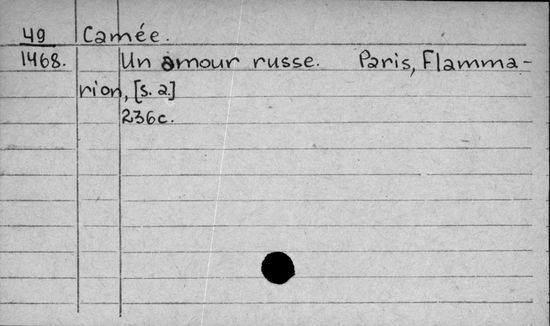 49 Camée.
1468. Un amour russe. Paris, Flamma-
rion, [s. a.]
236c.